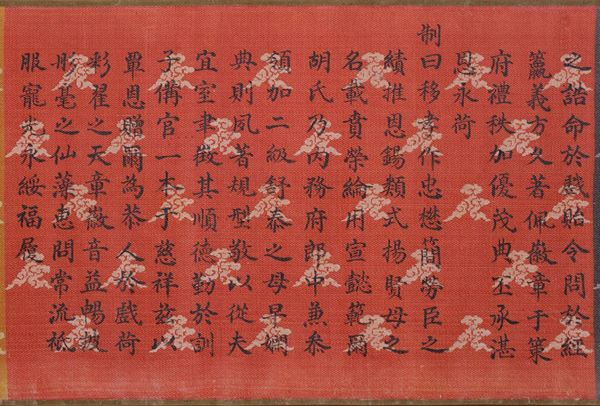 之誥命於戲貽令問於經
籯義方久著佩徽章于策
府禮秩加優茂典丕承湛
恩永荷
制曰移孝作忠懋簡勞臣之
績推恩錫類式揚賢母之
名載賁榮綸用宣懿範爾
胡氏乃內務府郎中兼叅
領加二級舒泰之母早嫻
典則夙著規型敬以從夫
宜室聿徵其順德勤於訓
子備官一本于慈祥茲以
覃恩贈爾為恭人於戲荷
彩翟之天章徽音益暢被
彤毫之仙藻惠問常流祗
服寵光永綏福履